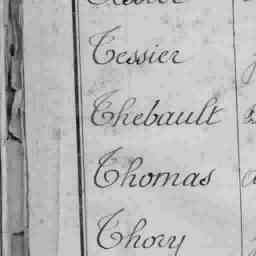 Tessier
Thebault
Thomas
Thory